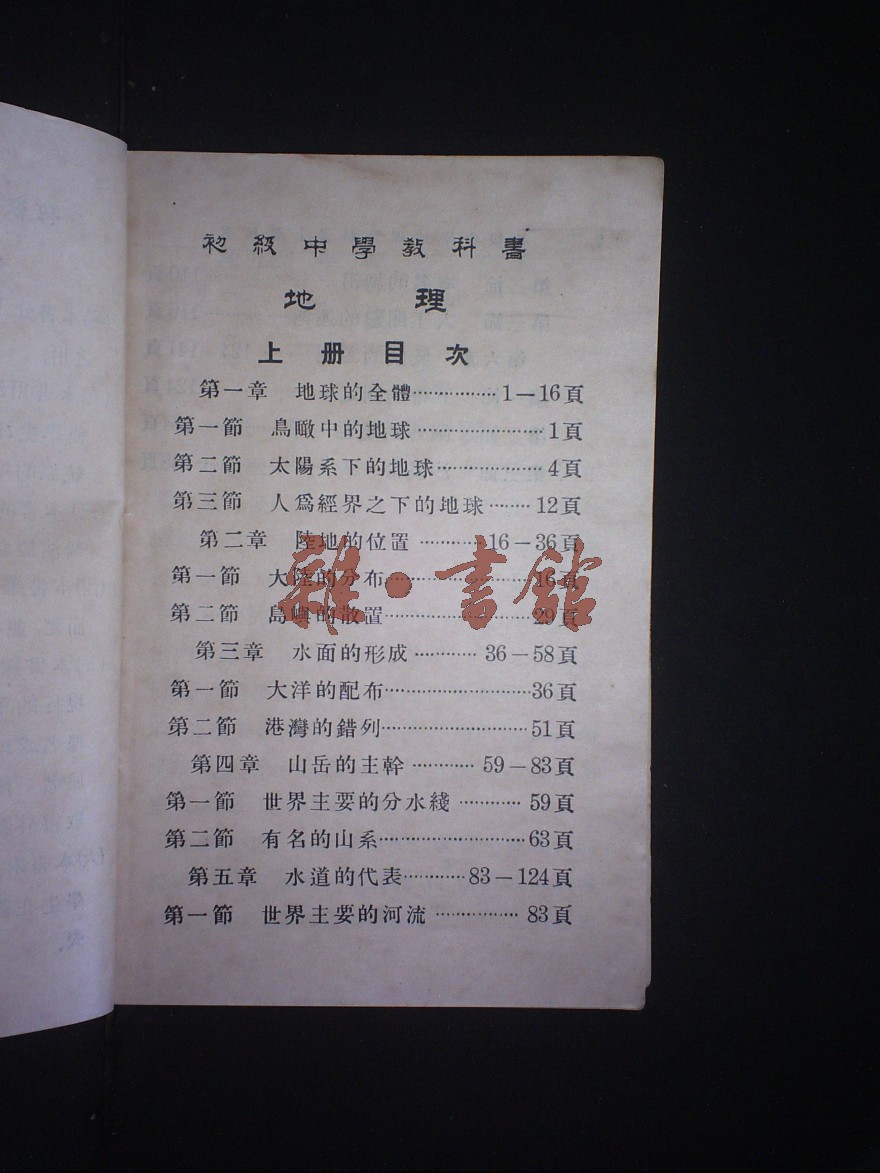 初級中學教科書
地理
上册目次
第一章 地球的全體……………1—16頁
第一節 鳥瞰中的地球…………………1頁
第二節 太陽系下的地球………………4頁
第三節 人爲經界之下的地球……12頁
第二章 陸地的位置………16—36頁
第一節 大陸的分布……………………16頁
第二節 島嶼的散置……………………29頁
第三章 水面的形成…………36—58頁
第一節 大洋的配布……………………36頁
第二節 港灣的錯列……………………51頁
第四章 山岳的主幹…………59—83頁
第一節 世界主要的分水綫…………59頁
第二節 有名的山系……………………63頁
第五章 水道的代表…………83—124頁
第一節 世界主要的河流……………83頁
雜·書館